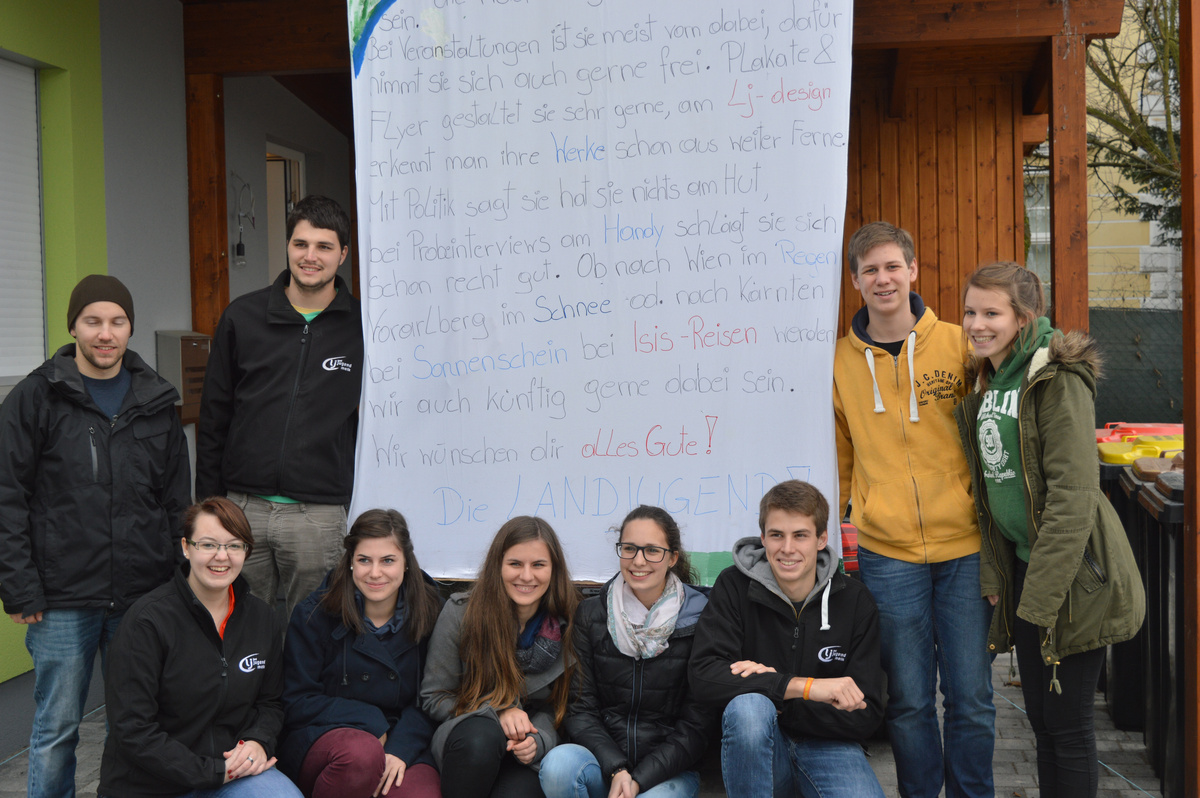 sein.
Bei Veranstaltungen ist sie meist vorn dabei, dafür
nimmt sie sich auch gerne frei. Plakate &
Flyer gestaltet sie sehr gerne, am Lj-design
erkennt man ihre Werke schon aus weiter Ferne.
Mit Politik sagt sie hat sie nichts am Hut,
bei Probeinterviews am Handy schlägt sie sich
schon recht gut. Ob nach Wien im Regen
Vorarlberg im Schnee od. nach Kärnten
bei Sonnenschein bei Isis-Reisen werden
wir auch künftig gerne dabei sein.
Wir wünschen dir alles Gute!
Die LANDJUGEND!
J.C. DENIM
Original